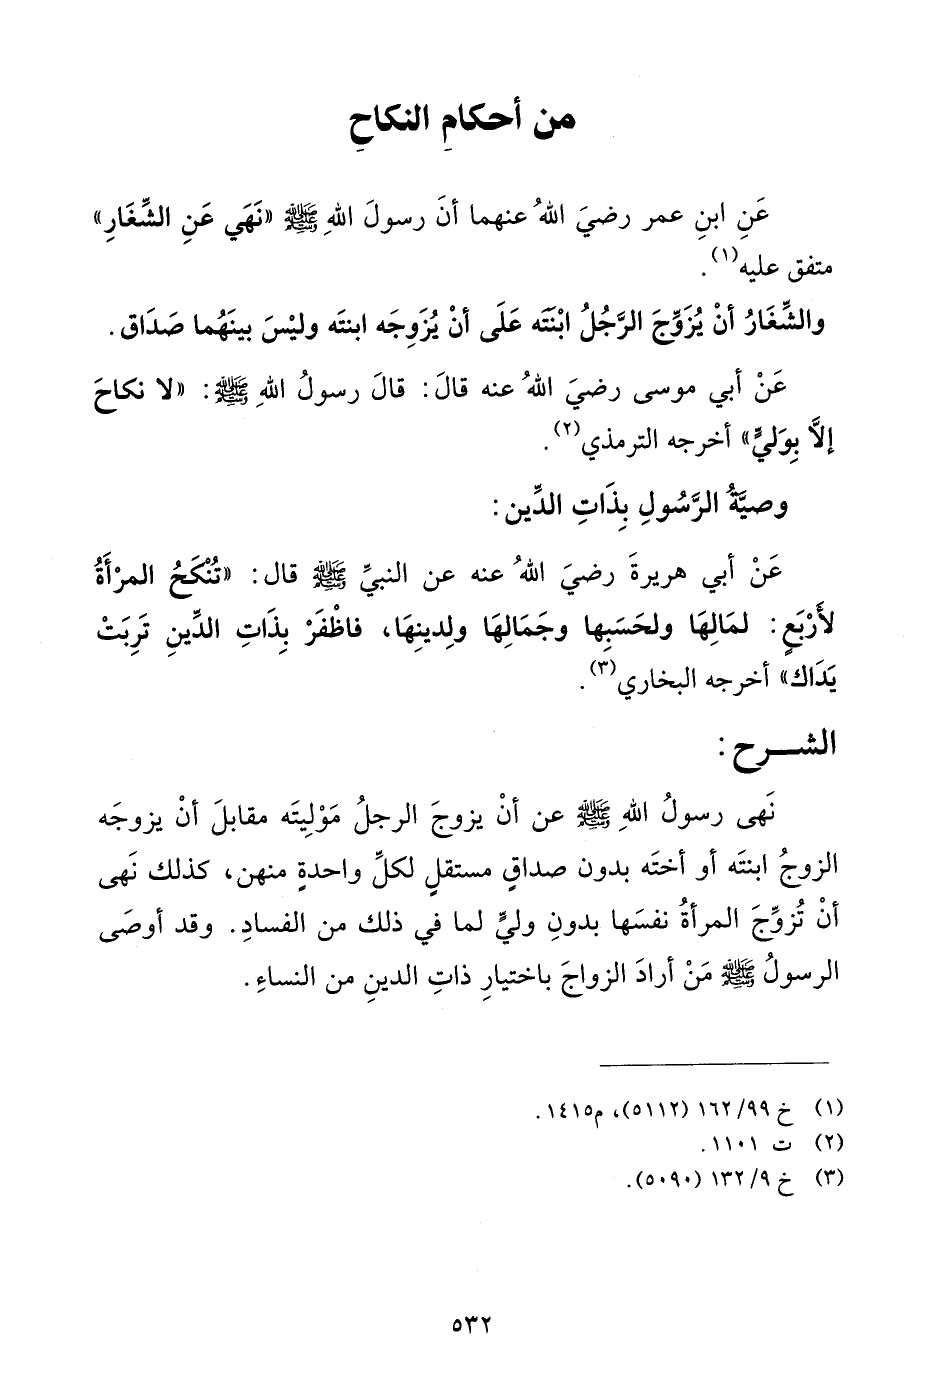 من أحكامِ النكاحِ
عَنِ ابنِ عمر رضيَ اللهُ عنهما أنَ رسولَ اللهِ ﷺ «نَهَي عَنِ الشِّغَارِ»
متفق عليه(١).
والشِّغَارُ أنْ يُزَوِّجَ الرَّجُلُ ابْنَتَه عَلَى أنْ يُزَوِجَه ابنتَه وليْسَ بينَهُما صَدَاق.
عَنْ أبي موسى رضيَ اللهُ عنه قالَ: قالَ رسولُ اللهِ ﷺ: «لا نكاحَ
إلاَّ بِوَليٍّ» أخرجه الترمذي(٢).
وصيَّةُ الرَّسُولِ بِذَاتِ الدِّين:
عَنْ أبي هريرةَ رضيَ اللهُ عنه عن النبيِّ ﷺ قال: «تُنْكَحُ المرْأَةُ
لأَرْبَعٍ: لمَالِهَا ولحَسَبِها وجَمَالِهَا ولِدينِهَا، فاظْفَرْ بِذَاتِ الدِّينِ تَرِبَتْ
يَدَاك» أخرجه البخاري(٣).
الشـــرح:
نَهى رسولُ اللهِ ﷺ عن أنْ يزوجَ الرجلُ مَوْلِيتَه مقابلَ أنْ يزوجَه
الزوجُ ابنتَه أو أختَه بدون صداقٍ مستقلٍ لكلِّ واحدةٍ منهن، كذلك نَهى
أنْ تُزوِّجَ المرأةُ نفسَها بدونِ وليٍّ لما في ذلك من الفسادِ. وقد أوصَى
الرسولُ ﷺ مَنْ أرادَ الزواجَ باختيارِ ذاتِ الدينِ من النساءِ.
(١) خ ٩٩/ ١٦٢ (٥١١٢)، م١٤١٥.
(٢) ت ١١٠١.
(٣) خ ٩/ ١٣٢ (٥٠٩٠).
٥٣٢